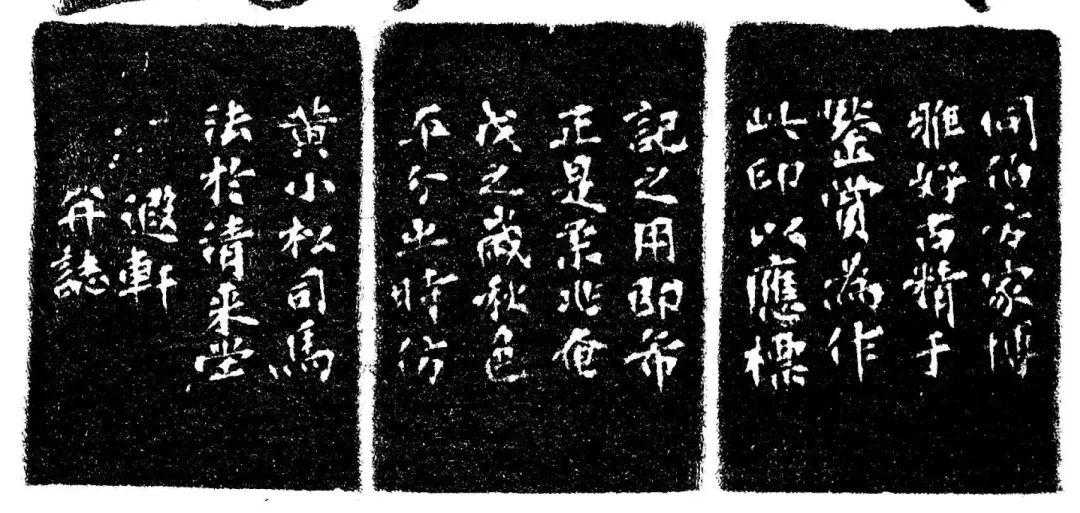 同伯方家博
雅好古精于
鑒賞為作
此印以應標
記之用即希
正是柔兆奄
茂之歲秋色
平分出時仿
黄小松司馬
法於清来堂
遐軒
并誌